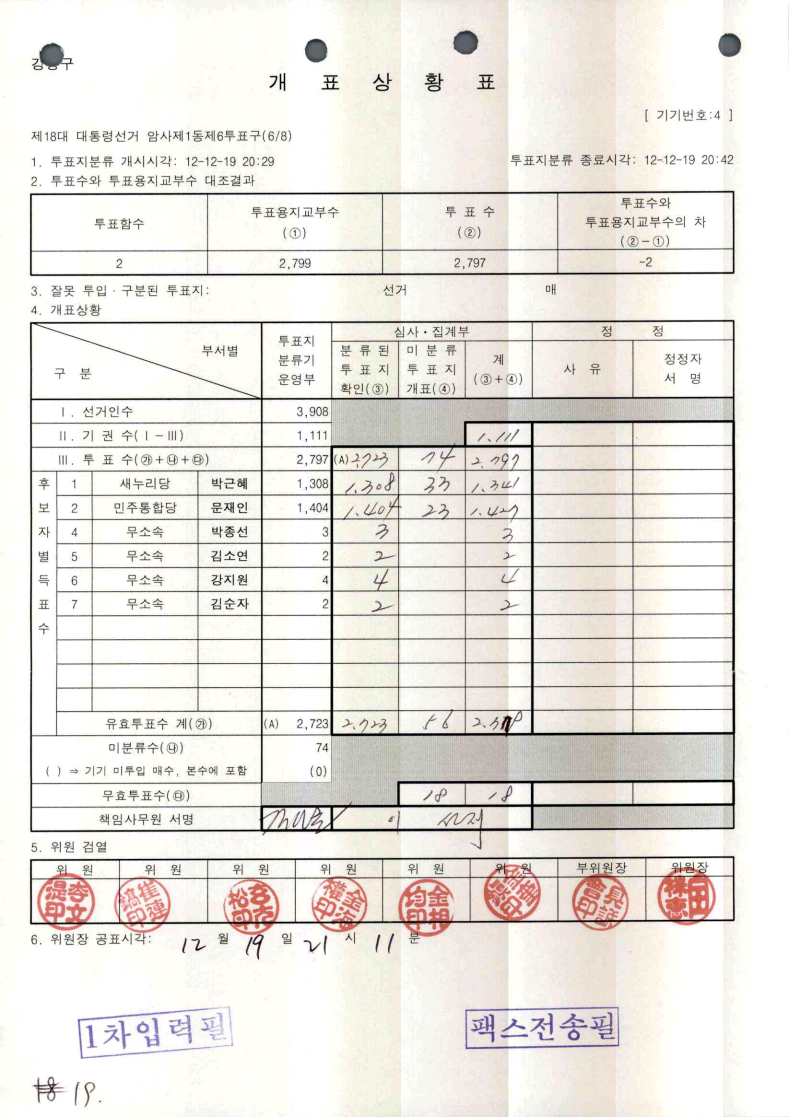 개 표 상 황 표
[ 기기번호:4 ]
제18대 대통령선거 암사제1동제6투표구(6/8)
1. 투표지분류 개시시각: 12-12-19 20:29
투표지분류 종료시각: 12-12-19 20:42
2. 투표수와 투표용지교부수 대조결과
투표함수 투표용지교부수 (①) 투 표 수 (②) 투표수와 투표용지교부수의 차 (②-①)
2 2,799 2,797 -2
3. 잘못 투입·구분된 투표지: 선거 매
4. 개표상황
구 분 부서별 투표지 분류기 운영부 심사·집계부 정 정
분 류 된 투 표 지 확인(③) 미 분 류 투 표 지 개표(④) 계 (③+④) 사 유 정정자 서 명
Ⅰ. 선거인수 3,908
Ⅱ. 기 권 수(Ⅰ-Ⅲ) 1,111 1.111
Ⅲ. 투 표 수(㉮+㉯+㉰) 2,797 (A) 2.723 74 2.797
후보자별득표수
1 새누리당 박근혜 1,308 1.308 33 1.341
2 민주통합당 문재인 1,404 1.404 23 1.427
4 무소속 박종선 3 3 3
5 무소속 김소연 2 2 2
6 무소속 강지원 4 4 4
7 무소속 김순자 2 2 2
유효투표수 계(㉮) (A) 2,723 2.723 56
미분류수(㉯) 74
( ) ⇒ 기기 미투입 매수, 본수에 포함 (0)
무효투표수(㉰) 18 18
책임사무원 서명
5. 위원 검열
위 원 위 원 위 원 위 원 위 원 위 원 부위원장 위원장
6. 위원장 공표시각: 12 월 19 일 21 시 11 분
1차입력필
팩스전송필
19.